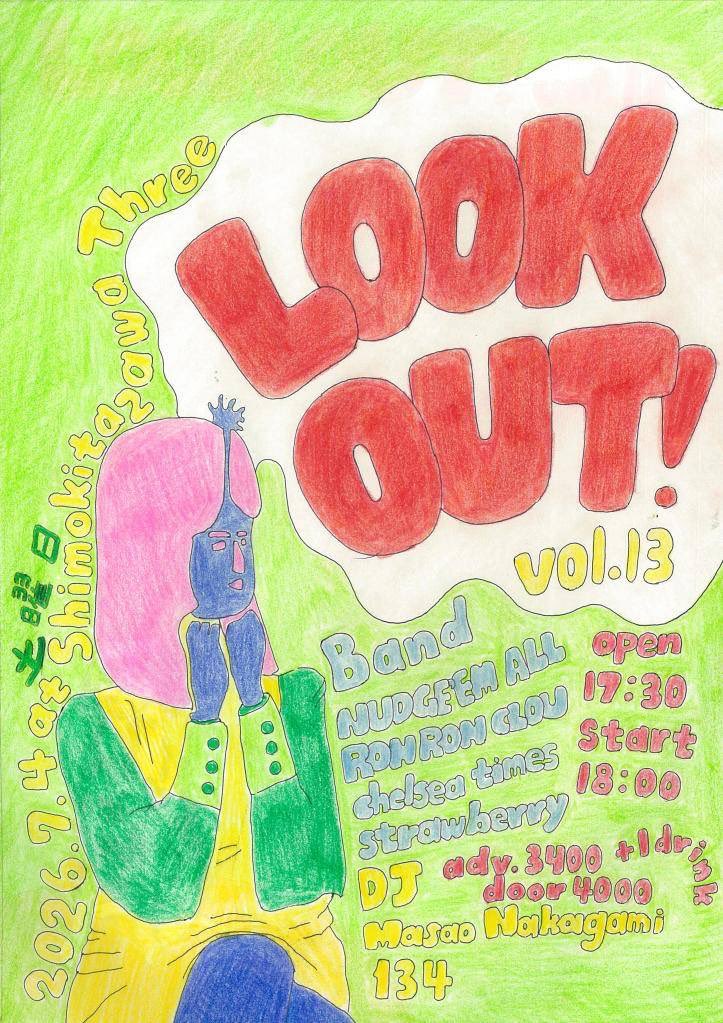 LOOK
OUT!
vol.13
2026.7.4 at Shimokitazawa Three
土曜日
Band
NUDGE'EM ALL
RON RON CLOU
chelsea times
strawberry
open
17:30
Start
18:00
adv. 3400 +1drink
door 4000
DJ
Masao Nakagami
134